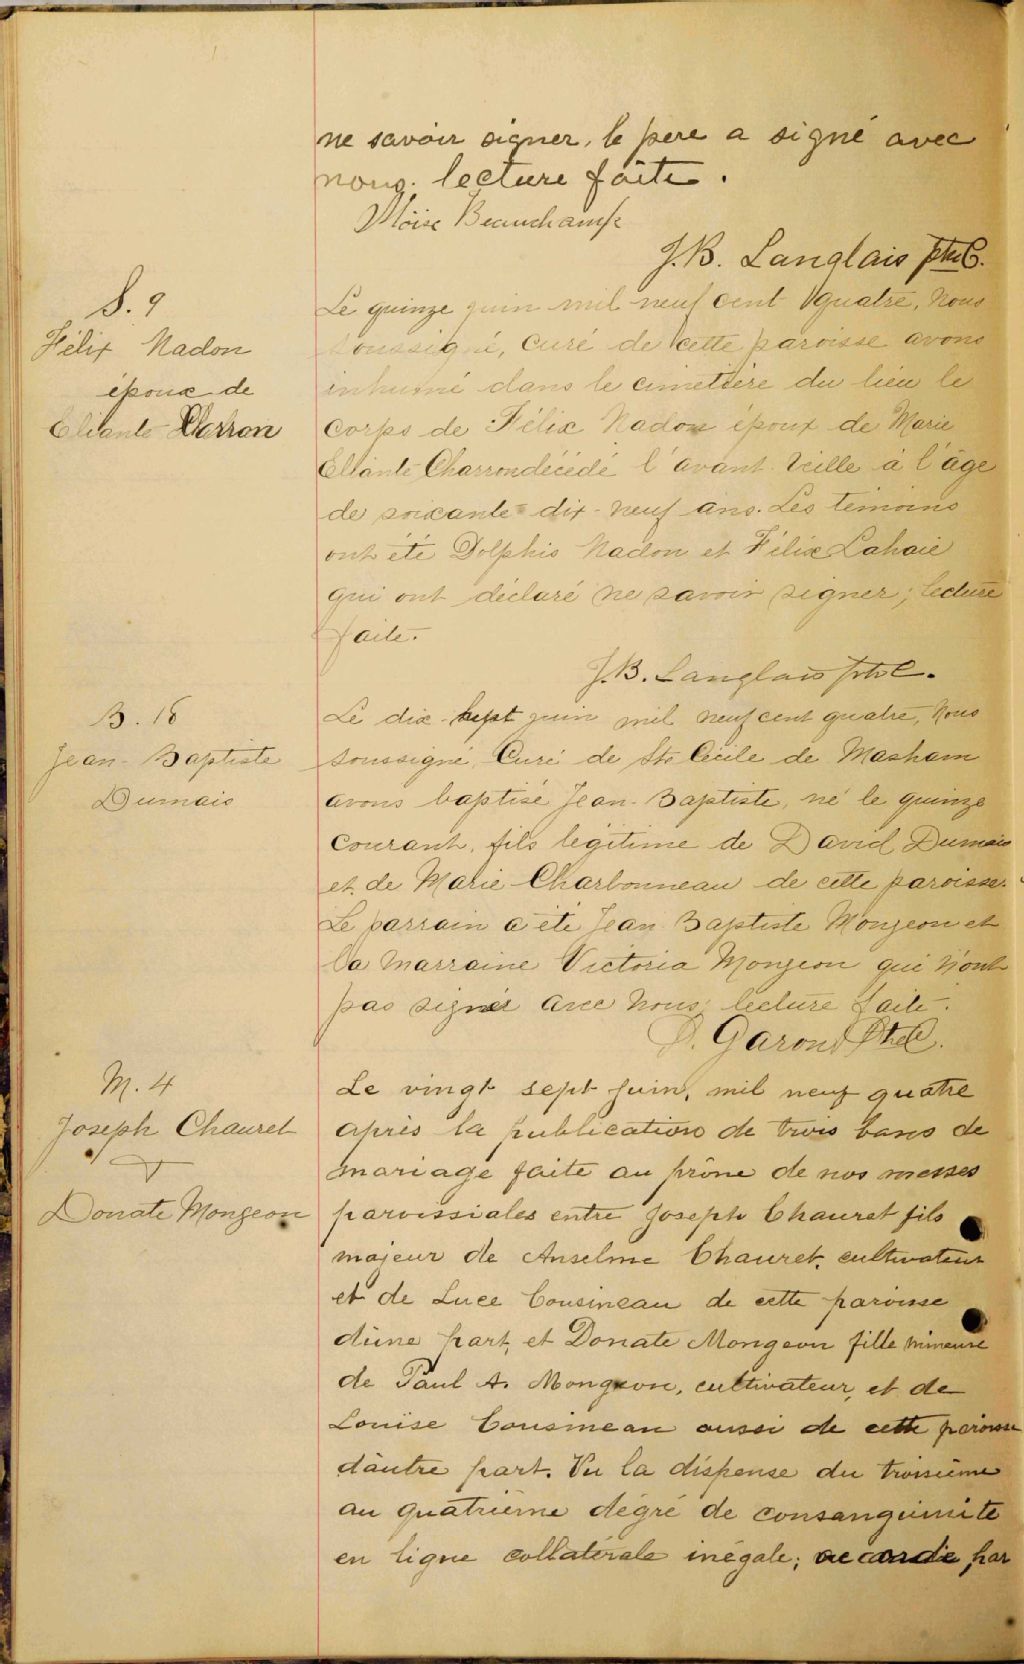 ne savoir signer, le père a signé avec
nous. lecture faite.
Moïse Beauchamp
J.B. Langlais ptre C.
S. 9
Félix Nadon
époux de
Eliante Charron
Le quinze juin mil neuf cent quatre, nous
soussigné, curé de cette paroisse avons
inhumé dans le cimetière du lieu le
corps de Félix Nadon époux de Marie
Eliante Charron décédé l'avant-veille à l'âge
de soixante-dix-neuf ans. Les témoins
ont été Dolphis Nadon et Félix Lahaie
qui ont déclaré ne savoir signer; lecture
faite.
J.B. Langlais ptre C.
B. 18
Jean-Baptiste
Dumais
Le dix-sept juin mil neuf cent quatre, nous
soussigné, Curé de Ste Cécile de Masham
avons baptisé Jean-Baptiste, né le quinze
courant, fils légitime de David Dumais
et de Marie Charbonneau de cette paroisse.
Le parrain a été Jean Baptiste Monjeon et
la marraine Victoria Monjeon qui n'ont
pas signer avec nous; lecture faite.
Garon Ptre C.
M. 4
Joseph Chauret
&
Donate Mongeon
Le vingt sept juin, mil neuf quatre
après la publication de trois bans de
mariage faite au prône de nos messes
paroissiales entre Joseph Chauret fils
majeur de Anselme Chauret, cultivateur
et de Luce Cousineau de cette paroisse
d'une part, et Donate Mongeon fille mineure
de Paul A. Mongeon, cultivateur, et de
Louise Cousineau aussi de cette paroisse
d'autre part. Vu la dispense du troisième
au quatrième dégré de consanguinité
en ligne collatérale inégale; accordée par